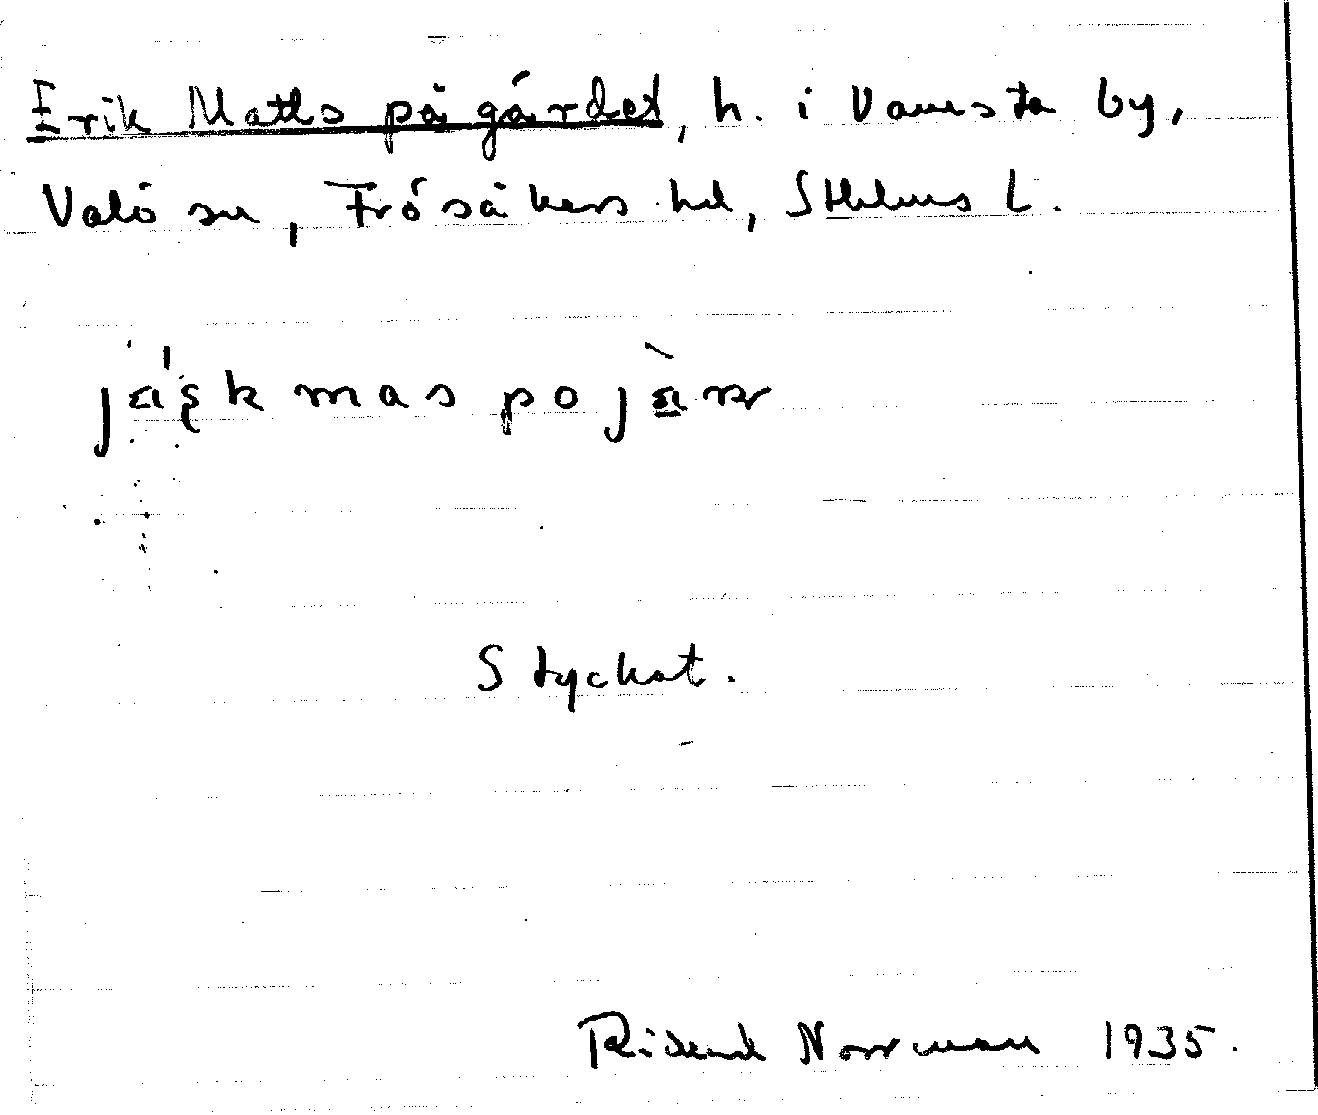 Erik Matts på gärdet, h. i Vamsta by,
Valö sn, Frösåkers hd, Sthlms L.
jä́ʂk mas po jǟɳ
Styckat.
Rickard Norrman 1935.